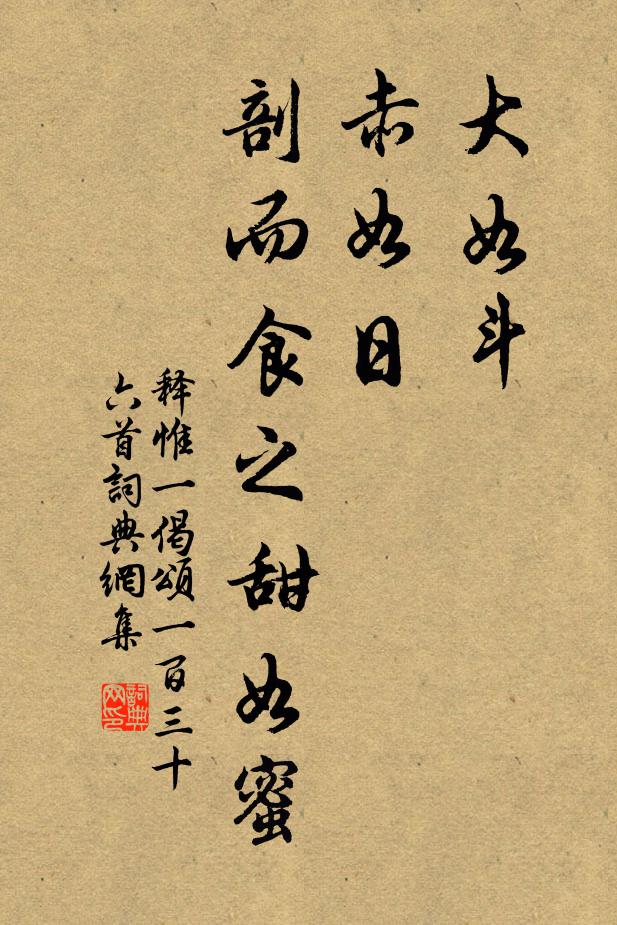 大如斗
赤如日
剖而食之甜如蜜
释惟一偈頌一百三十
六首詞典網集
詞典
网印